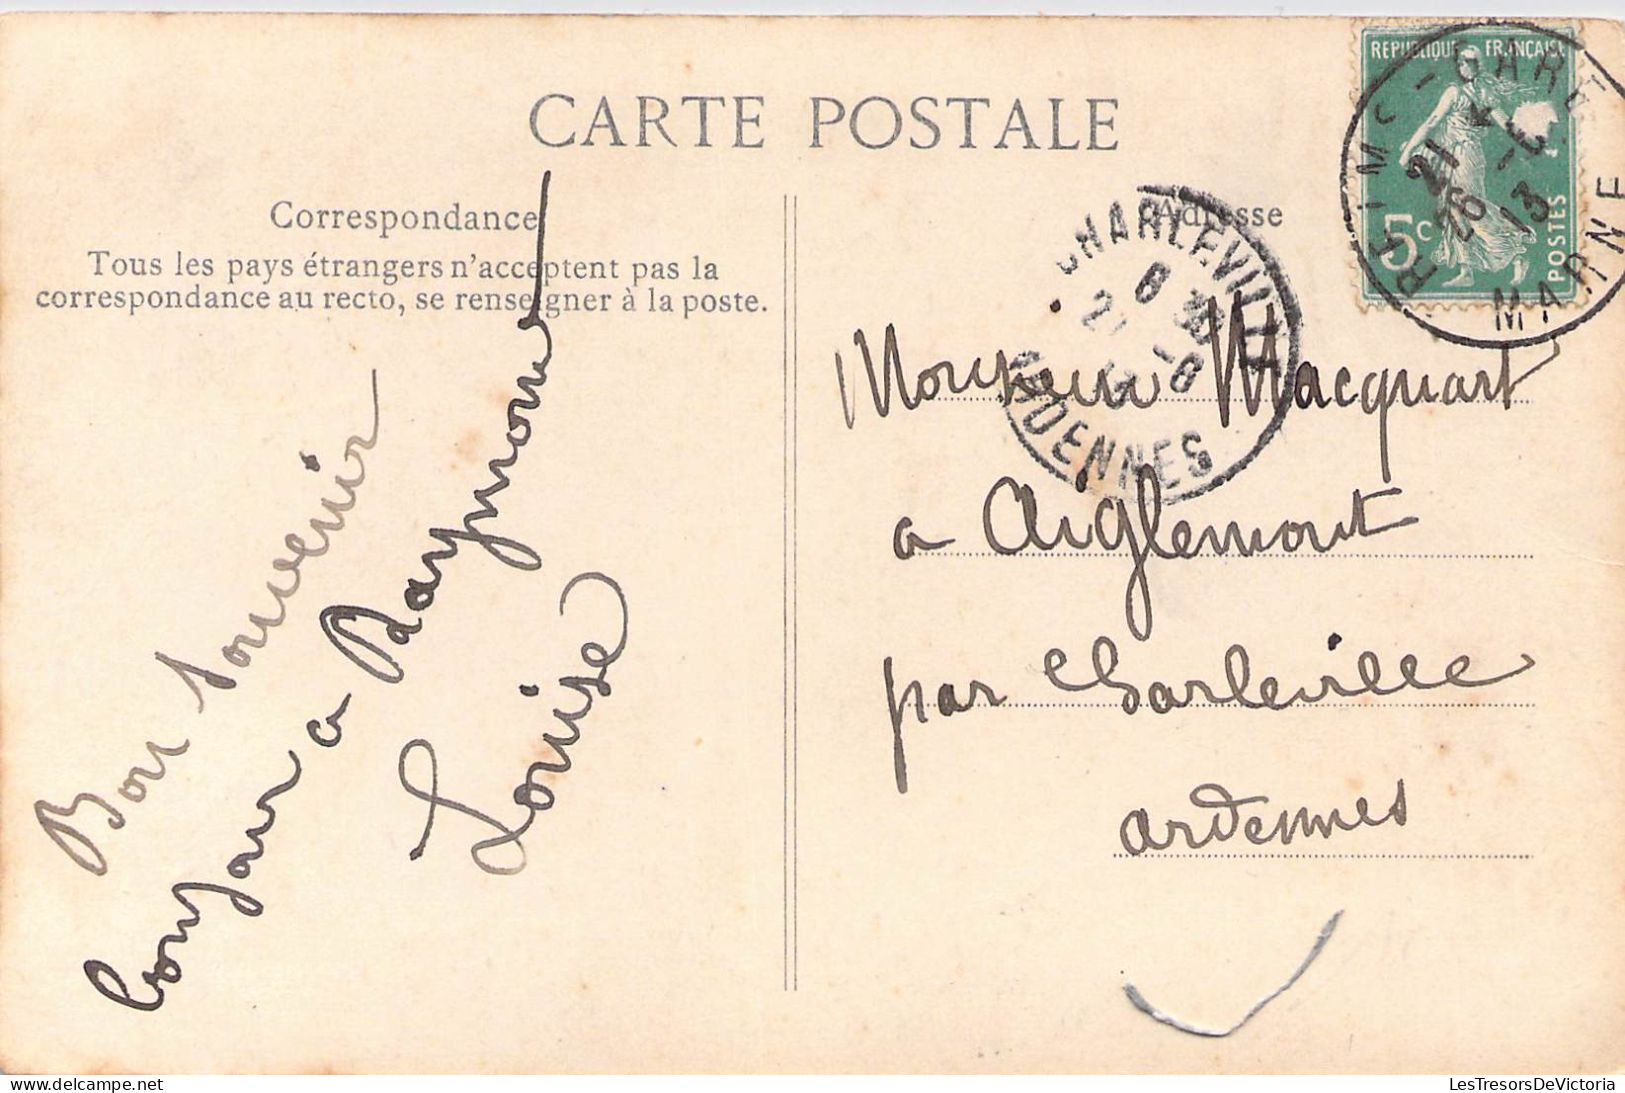 CARTE POSTALE
Correspondance
Tous les pays étrangers n'acceptent pas la
correspondance au recto, se renseigner à la poste.
Bon souvenir
bonjour a Raymond
Louise
Adresse
REPUBLIQUE FRANÇAISE
5c
POSTES
REIMS - GARE
21
26 - 6
13
MARNE
CHARLEVILLE
ARDENNES
Monsieur Macquart
a Aiglemont
par Charleville
ardennes
LesTresorsDeVictoria